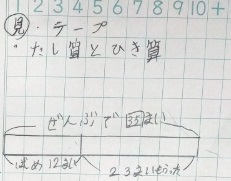 1 2 3 4 5 6 7 8 9 10 +
見・テープ
・たし算とひき算
ぜんぶで35まい
はじめ12まい
23まいもらった